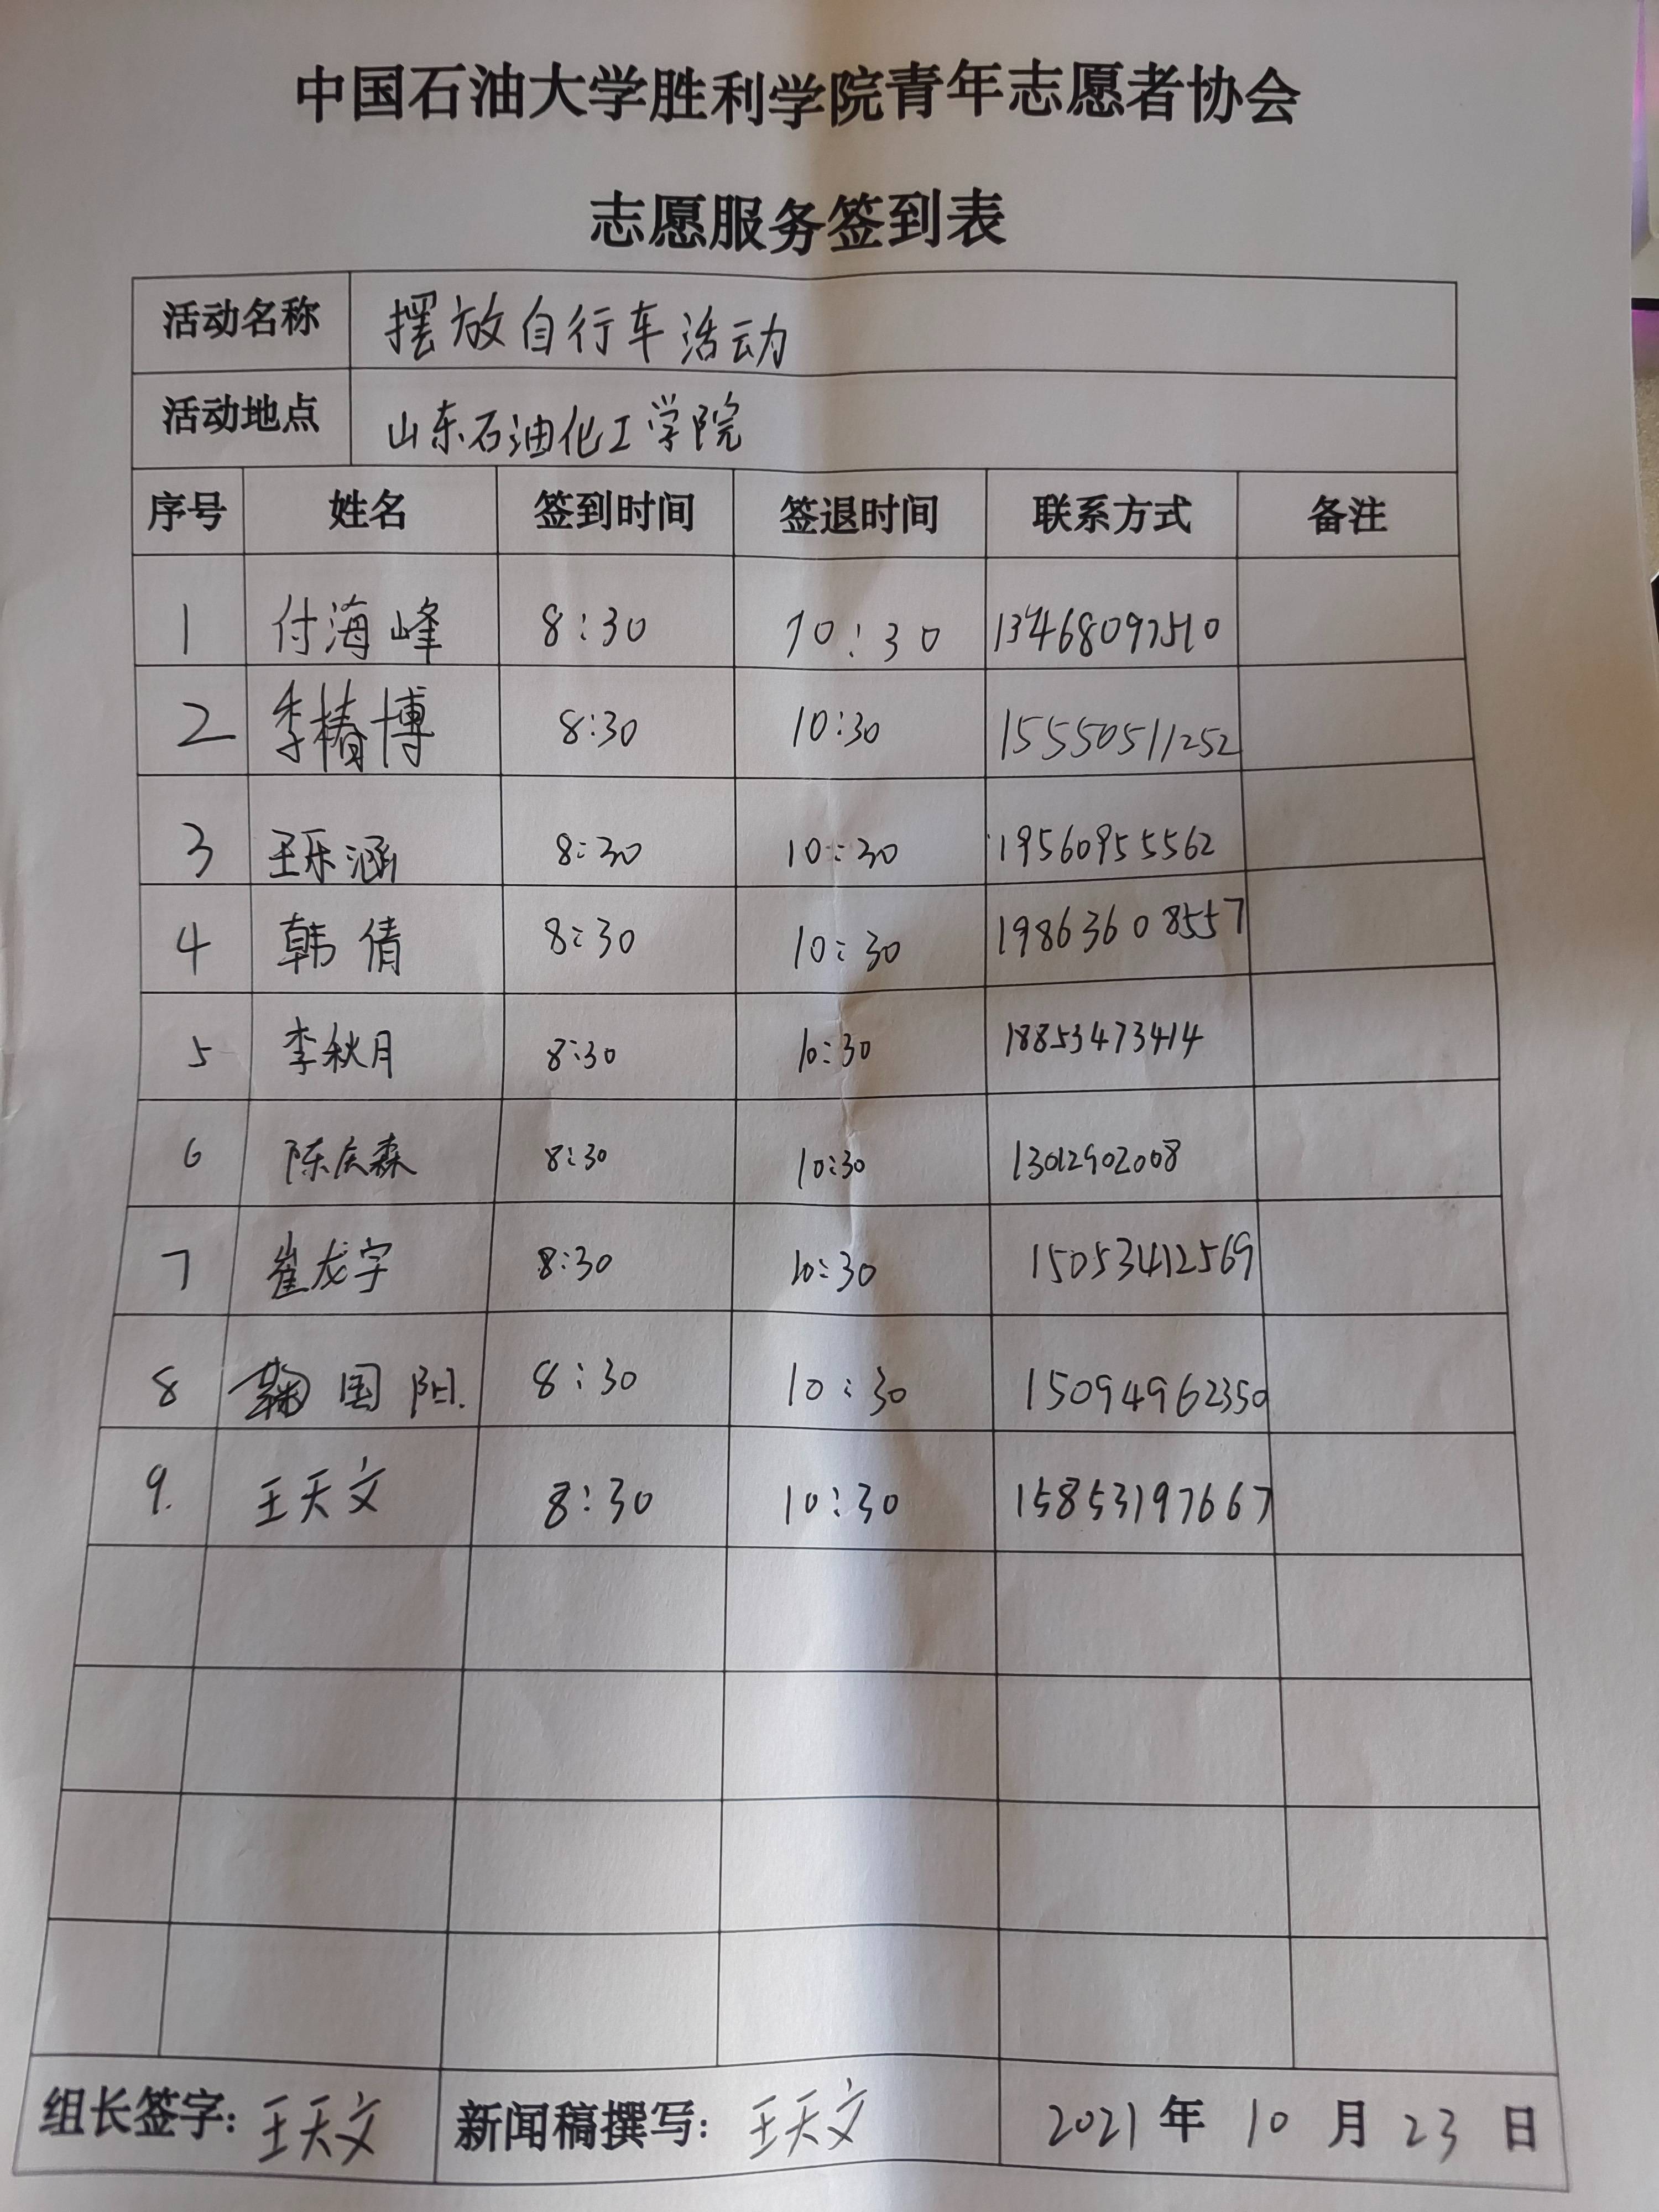 中国石油大学胜利学院青年志愿者协会
志愿服务签到表
活动名称 摆放自行车活动
活动地点 山东石油化工学院
序号 姓名 签到时间 签退时间 联系方式 备注
1 付海峰 8:30 10:30 13468097510
2 李椿博 8:30 10:30 15550511252
3 王乐涵 8:30 10:30 19560955562
4 韩倩 8:30 10:30 19863608557
5 李秋月 8:30 10:30 18853473414
6 陈庆森 8:30 10:30 13012902008
7 崔龙宇 8:30 10:30 15053412569
8 鞠国阳. 8:30 10:30 15094962350
9. 王天文 8:30 10:30 15853197667
组长签字: 王天文 新闻稿撰写: 王天文 2021年10月23日